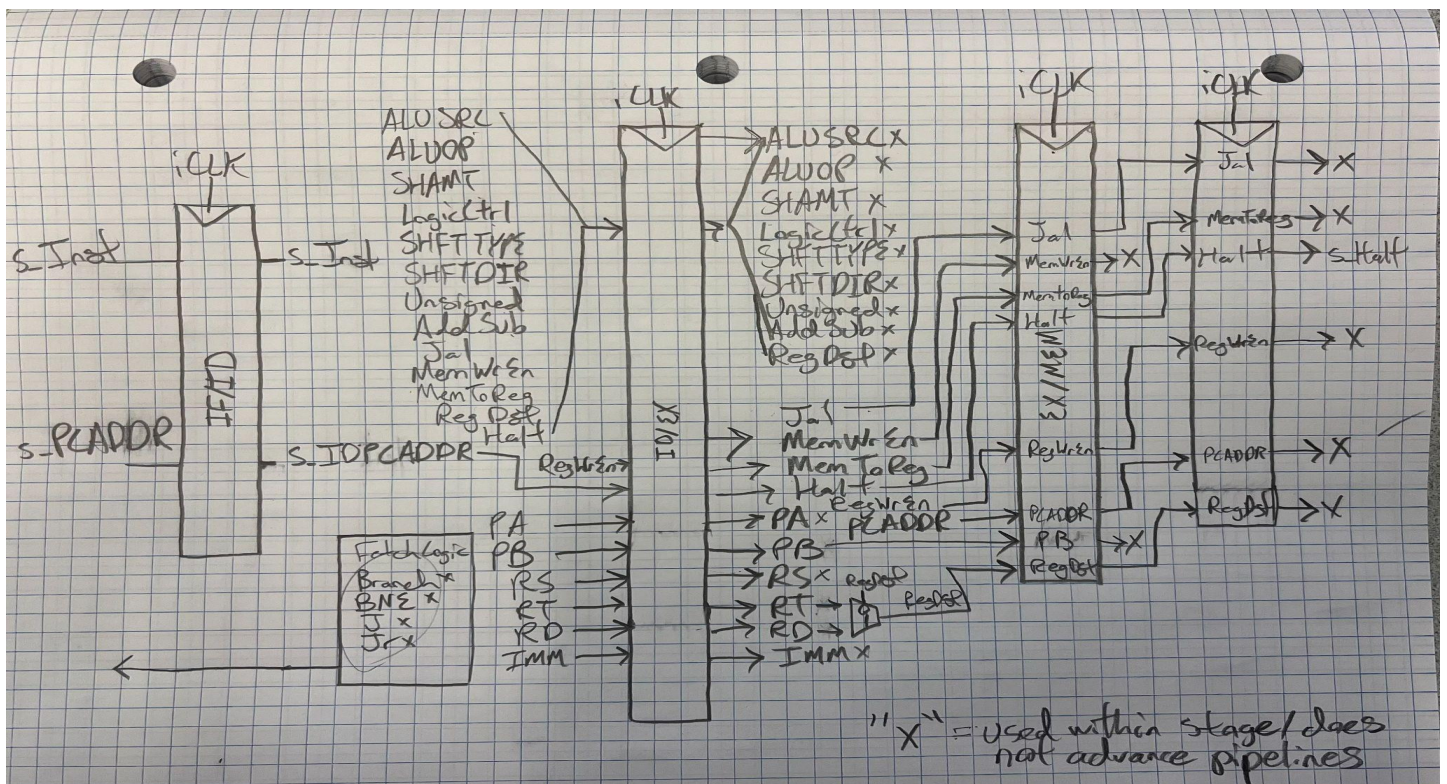 iCLK
s_Inst
s_Inst
IF/ID
s_PCADDR
s_IDPCADDR
FetchLogic
Branch x
BNE x
J x
Jr x
ALUSRC
ALUOP
SHAMT
LogicCtrl
SHFTTYPE
SHFTDIR
Unsigned
AddSub
Jal
MemWrEn
MemToReg
RegDst
Halt
RegWrEn
PA
PB
RS
RT
RD
IMM
iCLK
ID/EX
ALUSRC x
ALUOP x
SHAMT x
LogicCtrl x
SHFTTYPE x
SHFTDIR x
Unsigned x
AddSub x
RegDst x
Jal
MemWrEn
MemToReg
Halt
RegWrEn
PA x
PCADDR
PB
RS x
RegDst
RT
RegDst
RD
IMM x
iCLK
Jal
MemWrEn
X
MemtoReg
Halt
EX/MEM
RegWrEn
PCADDR
PB
X
RegDst
iCLK
Jal
X
MemToReg
X
Halt
s_Halt
RegWrEn
X
PCADDR
X
RegDst
X
"X" = used within stage/does
not advance pipelines